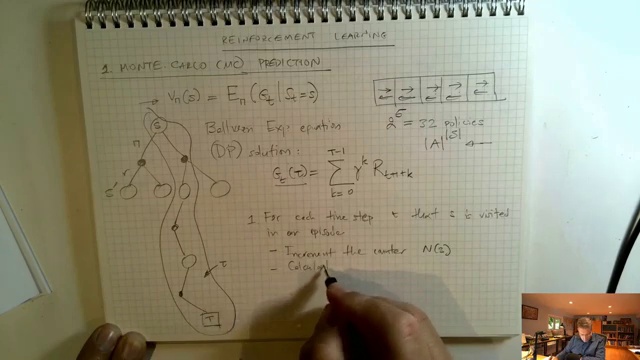 REINFORCEMENT LEARNING
1 MONTE-CARLO (MC) PREDICTION
→ V_π(s) = E_π(G_t | S_t = s)
Bellman Exp. equation
(DP) solution:
G_t(τ) = Σ_{k=0}^{T-1} γ^k R_{t+1+k}
2^5 = 32 policies
|A|^|S| ←
S
π
r
s'
τ
T
1 For each time step t that s is visited
in an episode:
- Increment the counter N(s)
- Calcul